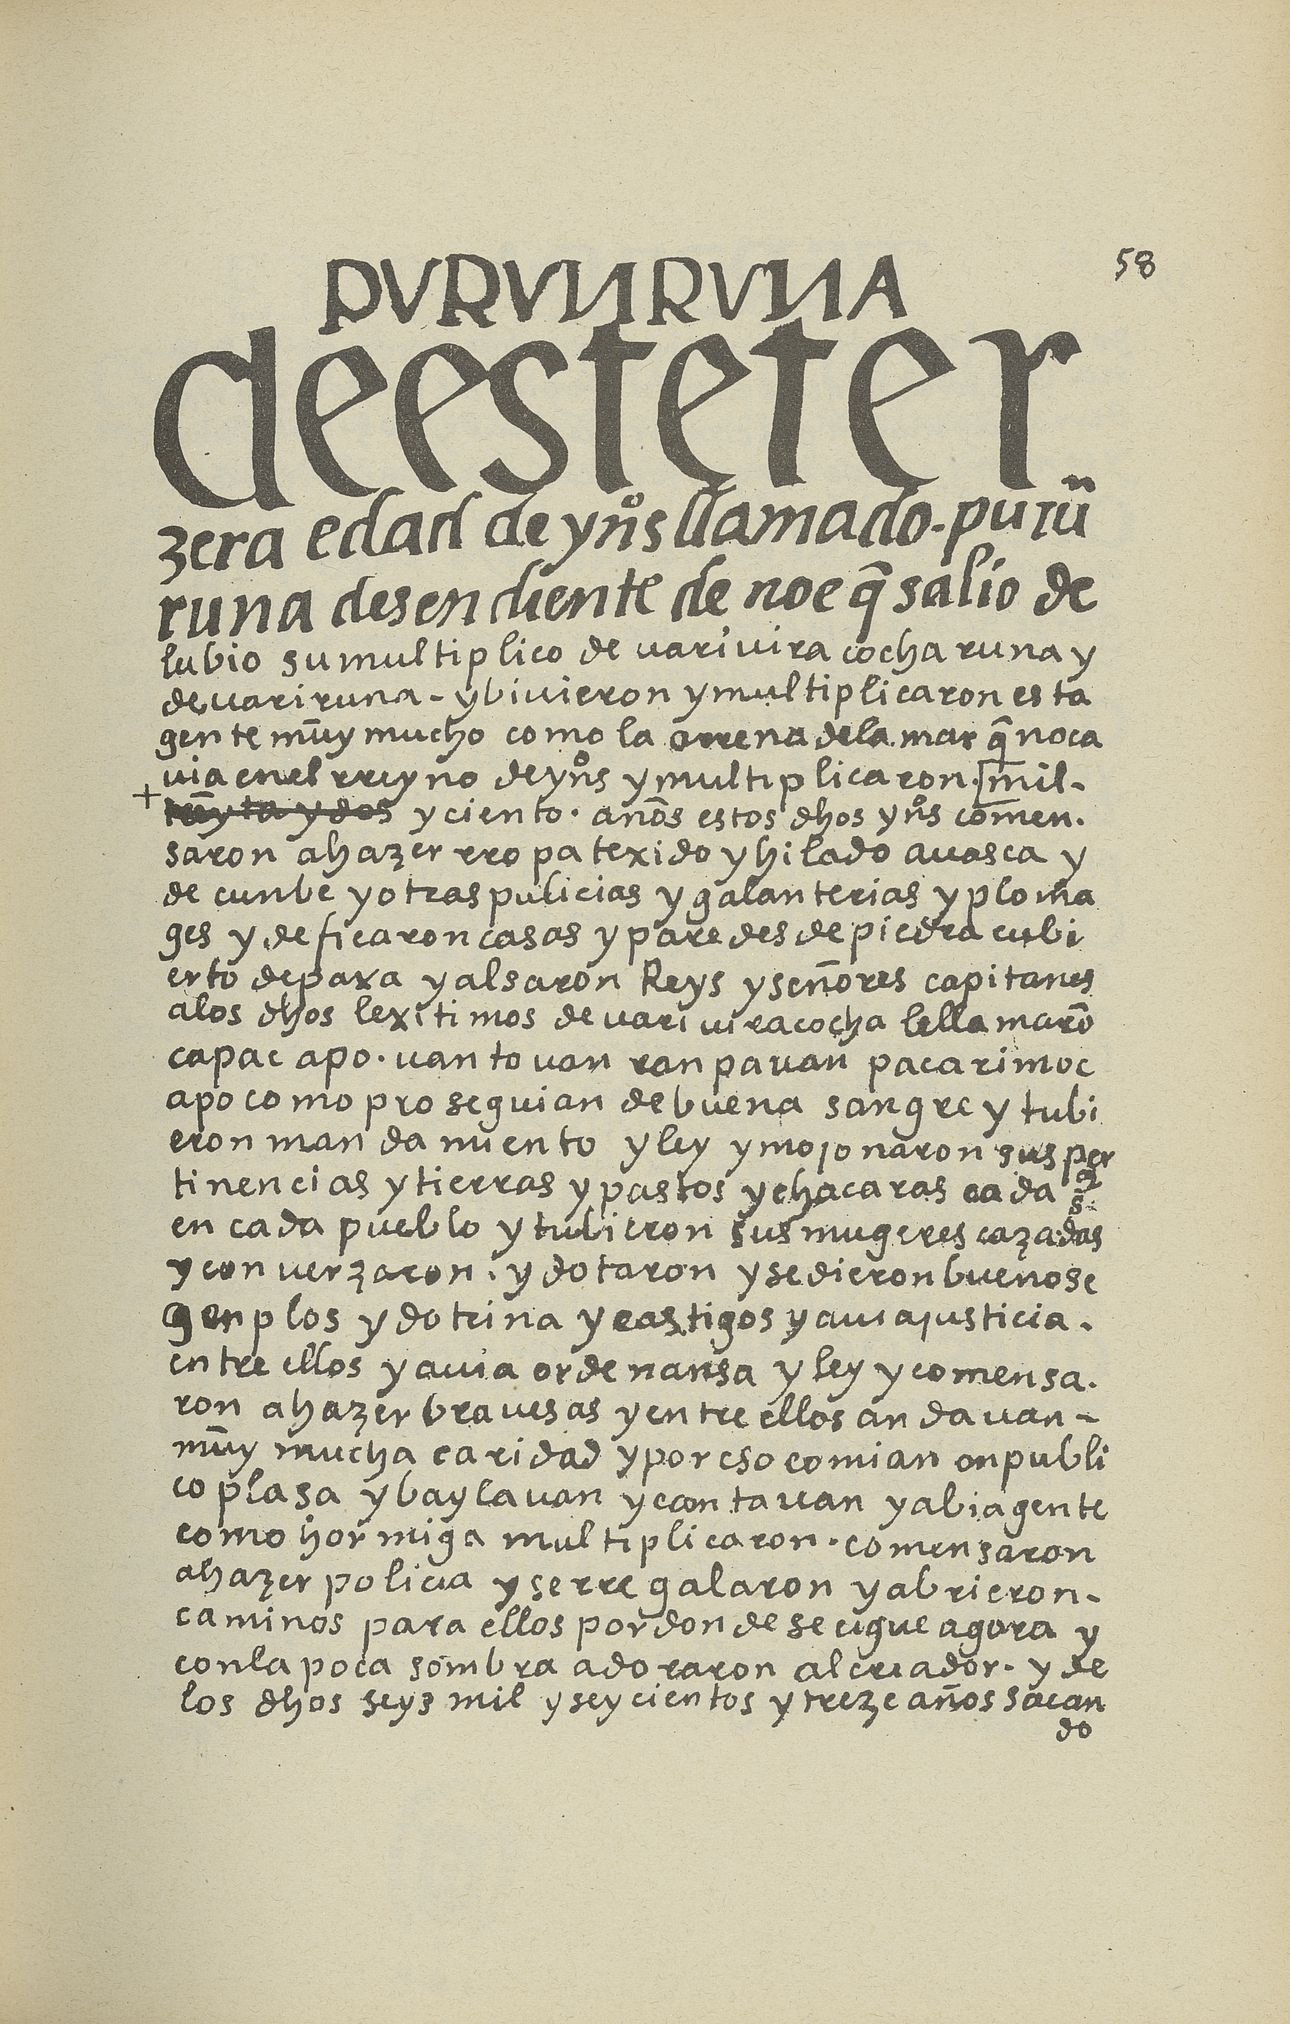 58
PVRVN RVNA
deesteter
zera edad de yn̊s llamado. purũ
runa desendiente de noe q̃ salio de
lubio sumultiplico de uari uira cocha runa y
deuariruna - ybiuieron ymultiplicaron esta
gente mũy mucho como la arrena dela mar q̃ noca
uia enel rreyno deyn̊s ymultiplicaron. [mil-
+ treynta y dos yciento. anõs estos dhos yn̊s comen.
saron ahazer rropa texido yhilado auasca y
de cunbe yotras pulicias y galanterias y ploma
ges y, deficaron casas y paredes de piedra cubi
erto depaxa yalsaron Reys yseñores capitanes
alos dhos lexitimos deuari uiracocha lellamarõ
capac apo. uanto uan ran pauan pacarimoc
apo como proseguian debuena sangre y tubi
eron mandamiento yley ymojonaron sus per
tinencias ytierras ypastos ychacaras cada
en cada pueblo ytubieron sus mugeres cazadas
yconuerzaron. ydotaron ysedieron buenos e
genplos ydotrina ycastigos yauia justicia.
entre ellos yauia ordenansa yley ycomensa.
ron ahazer brauesas yentre ellos andauan -
mũy mucha caridad yporeso comian enpubli
co plasa ybaylauan ycantauan yabiagente
como hormiga multiplicaron. comensaron
ahazer policia yserregalaron yabrieron-
caminos para ellos pordonde se cigue agora y
conla poca sombra adoraron alcriador. y de
los dhos seys mil yseycientos ytreze años sacan
do